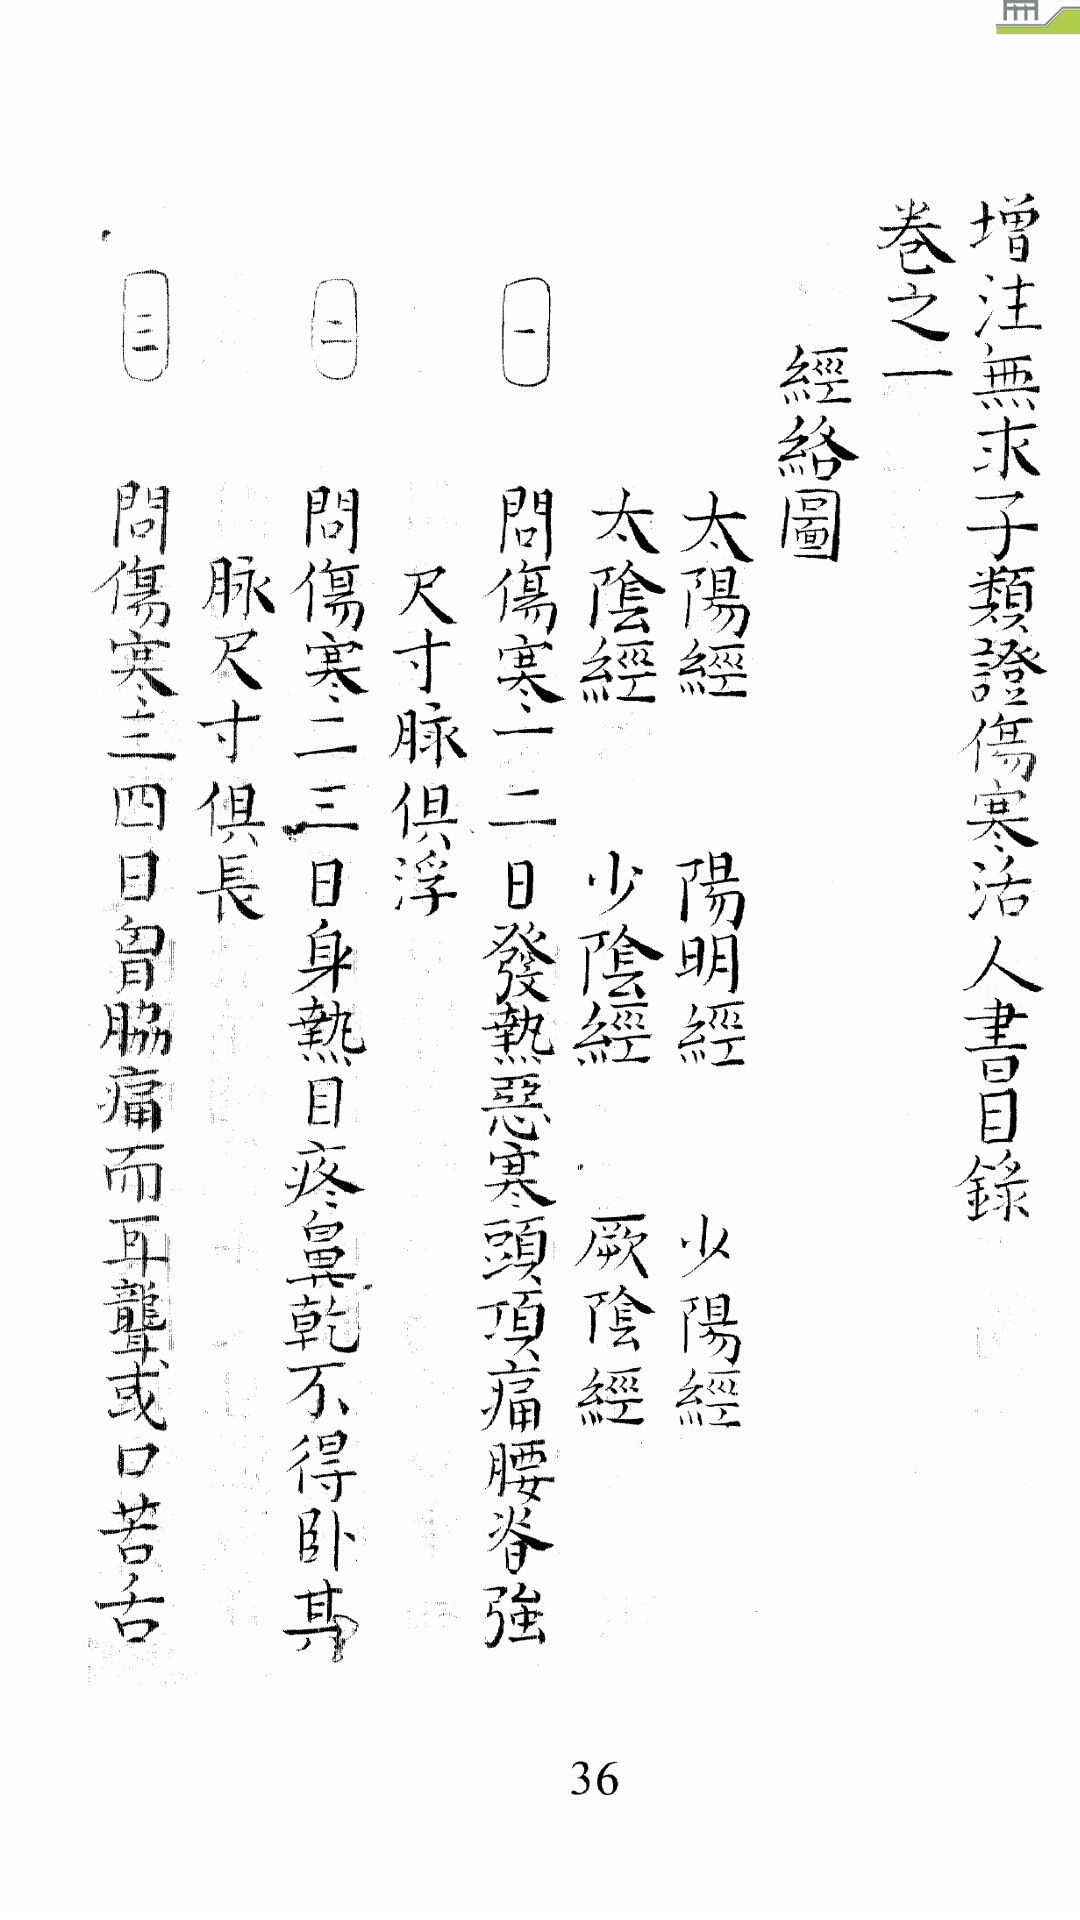 增注無求子類證傷寒活人書目錄
卷之一
經絡圖
太陽經 陽明經 少陽經
太陰經 少陰經 厥陰經
一 問傷寒一二日發熱惡寒頭項痛腰脊強
尺寸脉俱浮
二 問傷寒二三日身熱目疼鼻乾不得卧其
脉尺寸俱長
三 問傷寒三四日胷脇痛而耳聾或口苦舌
36